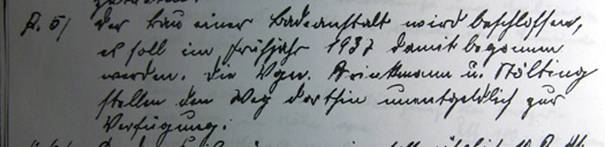 P. 5/ Der Bau einer Badeanstalt wird beschlossen,
es soll im Frühjahr 1937 damit begonnen
werden. Die Vgn. Brinkmann u. Nölting
stellen den Weg dorthin unentgeldlich zur
Verfügung.